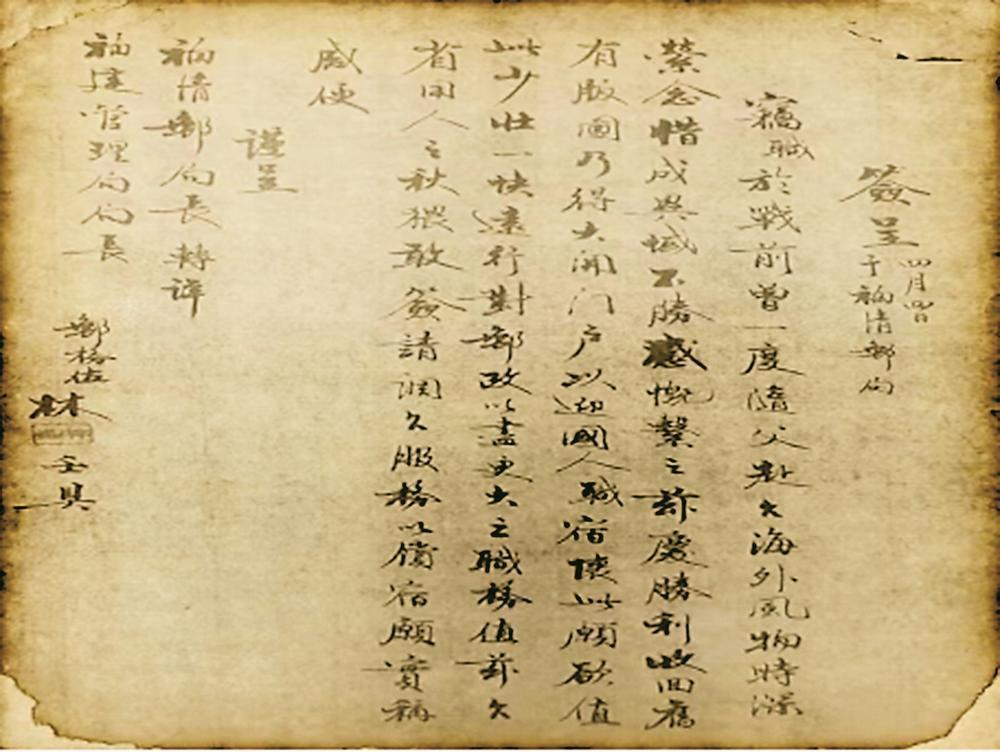 簽呈
四月四日
于福清郵局
竊職於戰前曾一度隨父赴台海外風物時深
縈念惜成與憾不勝感慨繫之茲慶勝利收回舊
有版圖乃得大開门戶以迎國人職宿懷此願欲值
此少壯一快遠行對郵政以盡更大之職務值茲台
省用人之秋猥敢簽請調台服務以償宿願實稱
感便
謹呈
福清郵局長轉詳
福建管理局局長
郵務佐
林
具